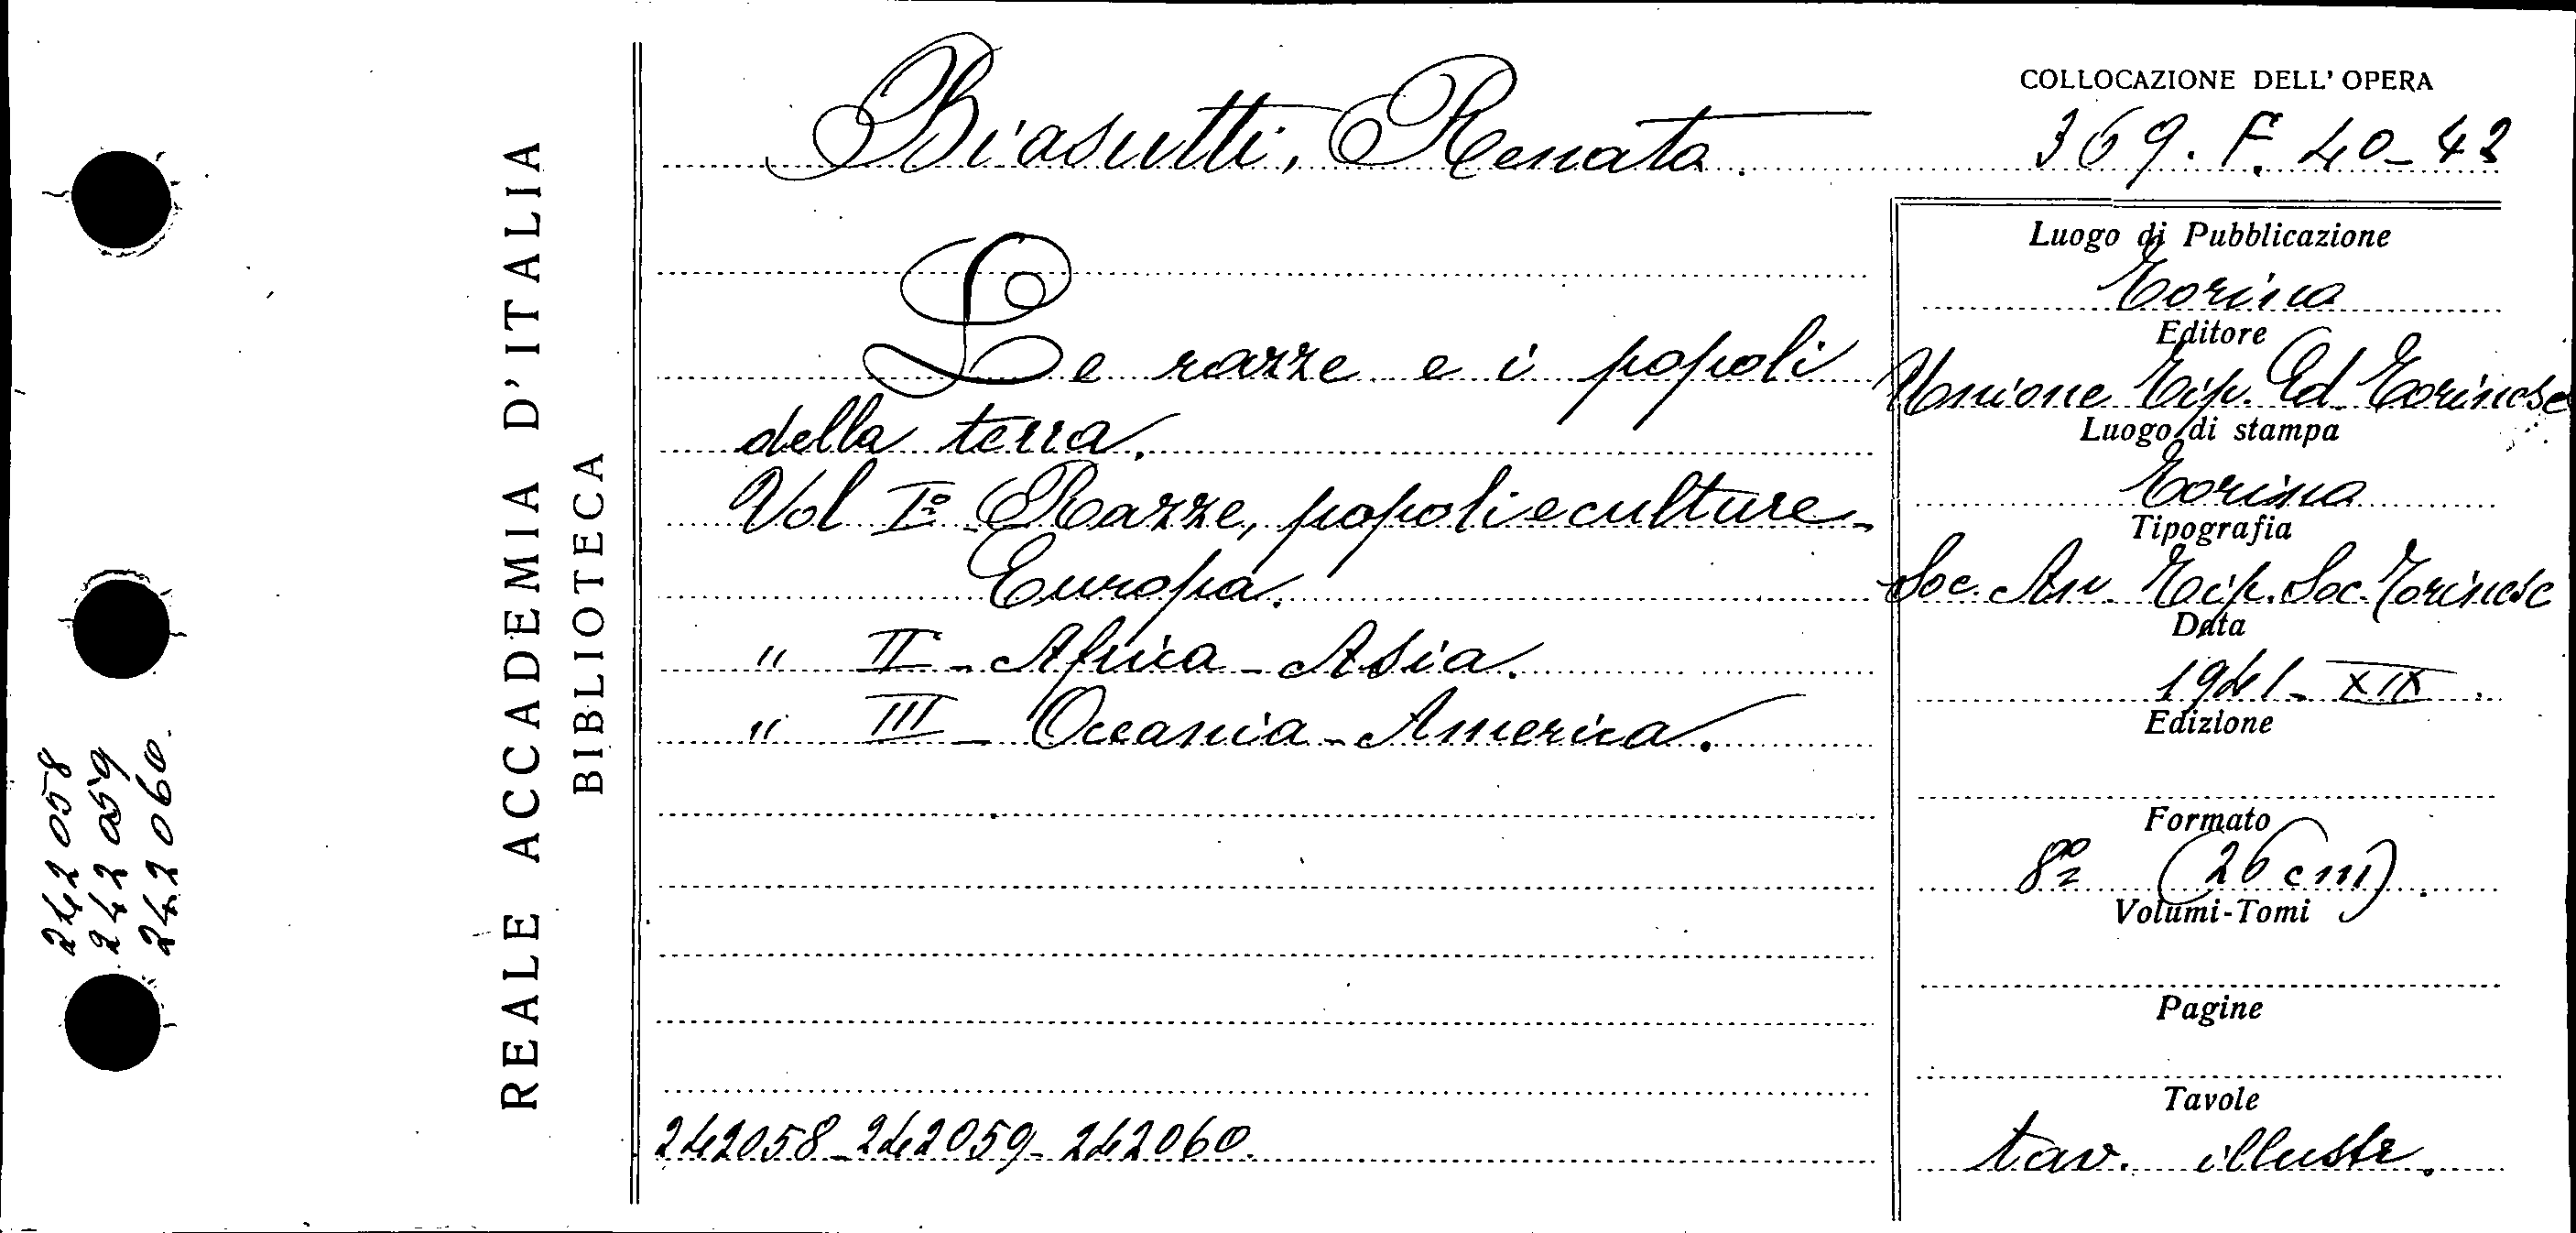 242058
242059
242060.
REALE ACCADEMIA D'ITALIA
BIBLIOTECA
Biasutti, Renato.
Le razze e i popoli
della terra.
Vol Iº - Razze, popoli e culture -
Europa.
" II - Africa - Asia.
" III - Oceania - America.
242058 - 242059 - 242060.
COLLOCAZIONE DELL'OPERA
369. F. 40-42
Luogo di Pubblicazione
Torino
Editore
Unione Tip. Ed. Torinese
Luogo di stampa
Torino
Tipografia
Soc. An. Tip. Soc. Torinese
Data
1941 - XIX.
Edizione
Formato
8º (26 cm).
Volumi-Tomi
Pagine
Tavole
tav. illustr.